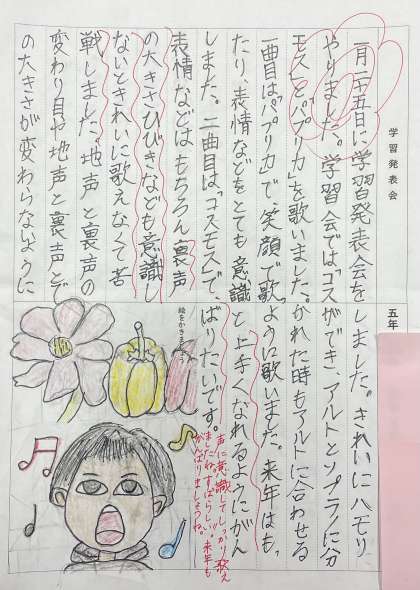 学習発表会
五年
一月二十五日に学習発表会を
やりました。学習会では「コス
モス」と「パプリカ」を歌いました。
一曲目は「パプリカ」で、笑顔で歌っ
たり、表情などをとても意識
しました。二曲目は、「コスモス」で、
表情などはもちろん裏声
の大きさひびきなども意識し
ないときれいに歌えなくて苦
戦しました。地声と裏声の
変わり目や地声と裏声で
の大きさが変わらないように
しました。きれいにハモリ
ができ、アルトとソプラノに分
かれた時もアルトに合わせる
ように歌いました。来年はも
っと上手くなれるようにがん
ばりたいです。
絵をかきましょう
声に意識してしっかり歌え
ましたね。すばらしい!!来年も
がんばりましょうね。